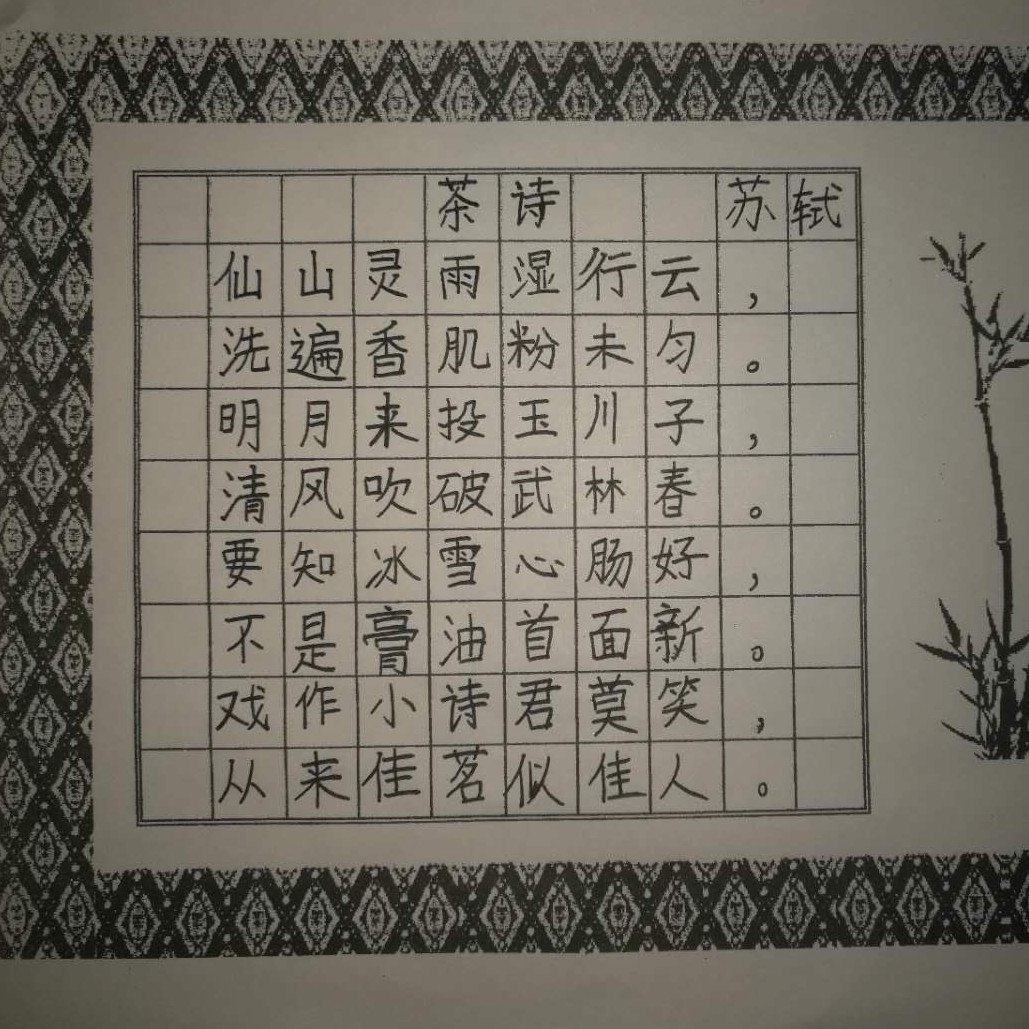 茶诗 苏轼
仙山灵雨湿行云，
洗遍香肌粉未匀。
明月来投玉川子，
清风吹破武林春。
要知冰雪心肠好，
不是膏油首面新。
戏作小诗君莫笑，
从来佳茗似佳人。